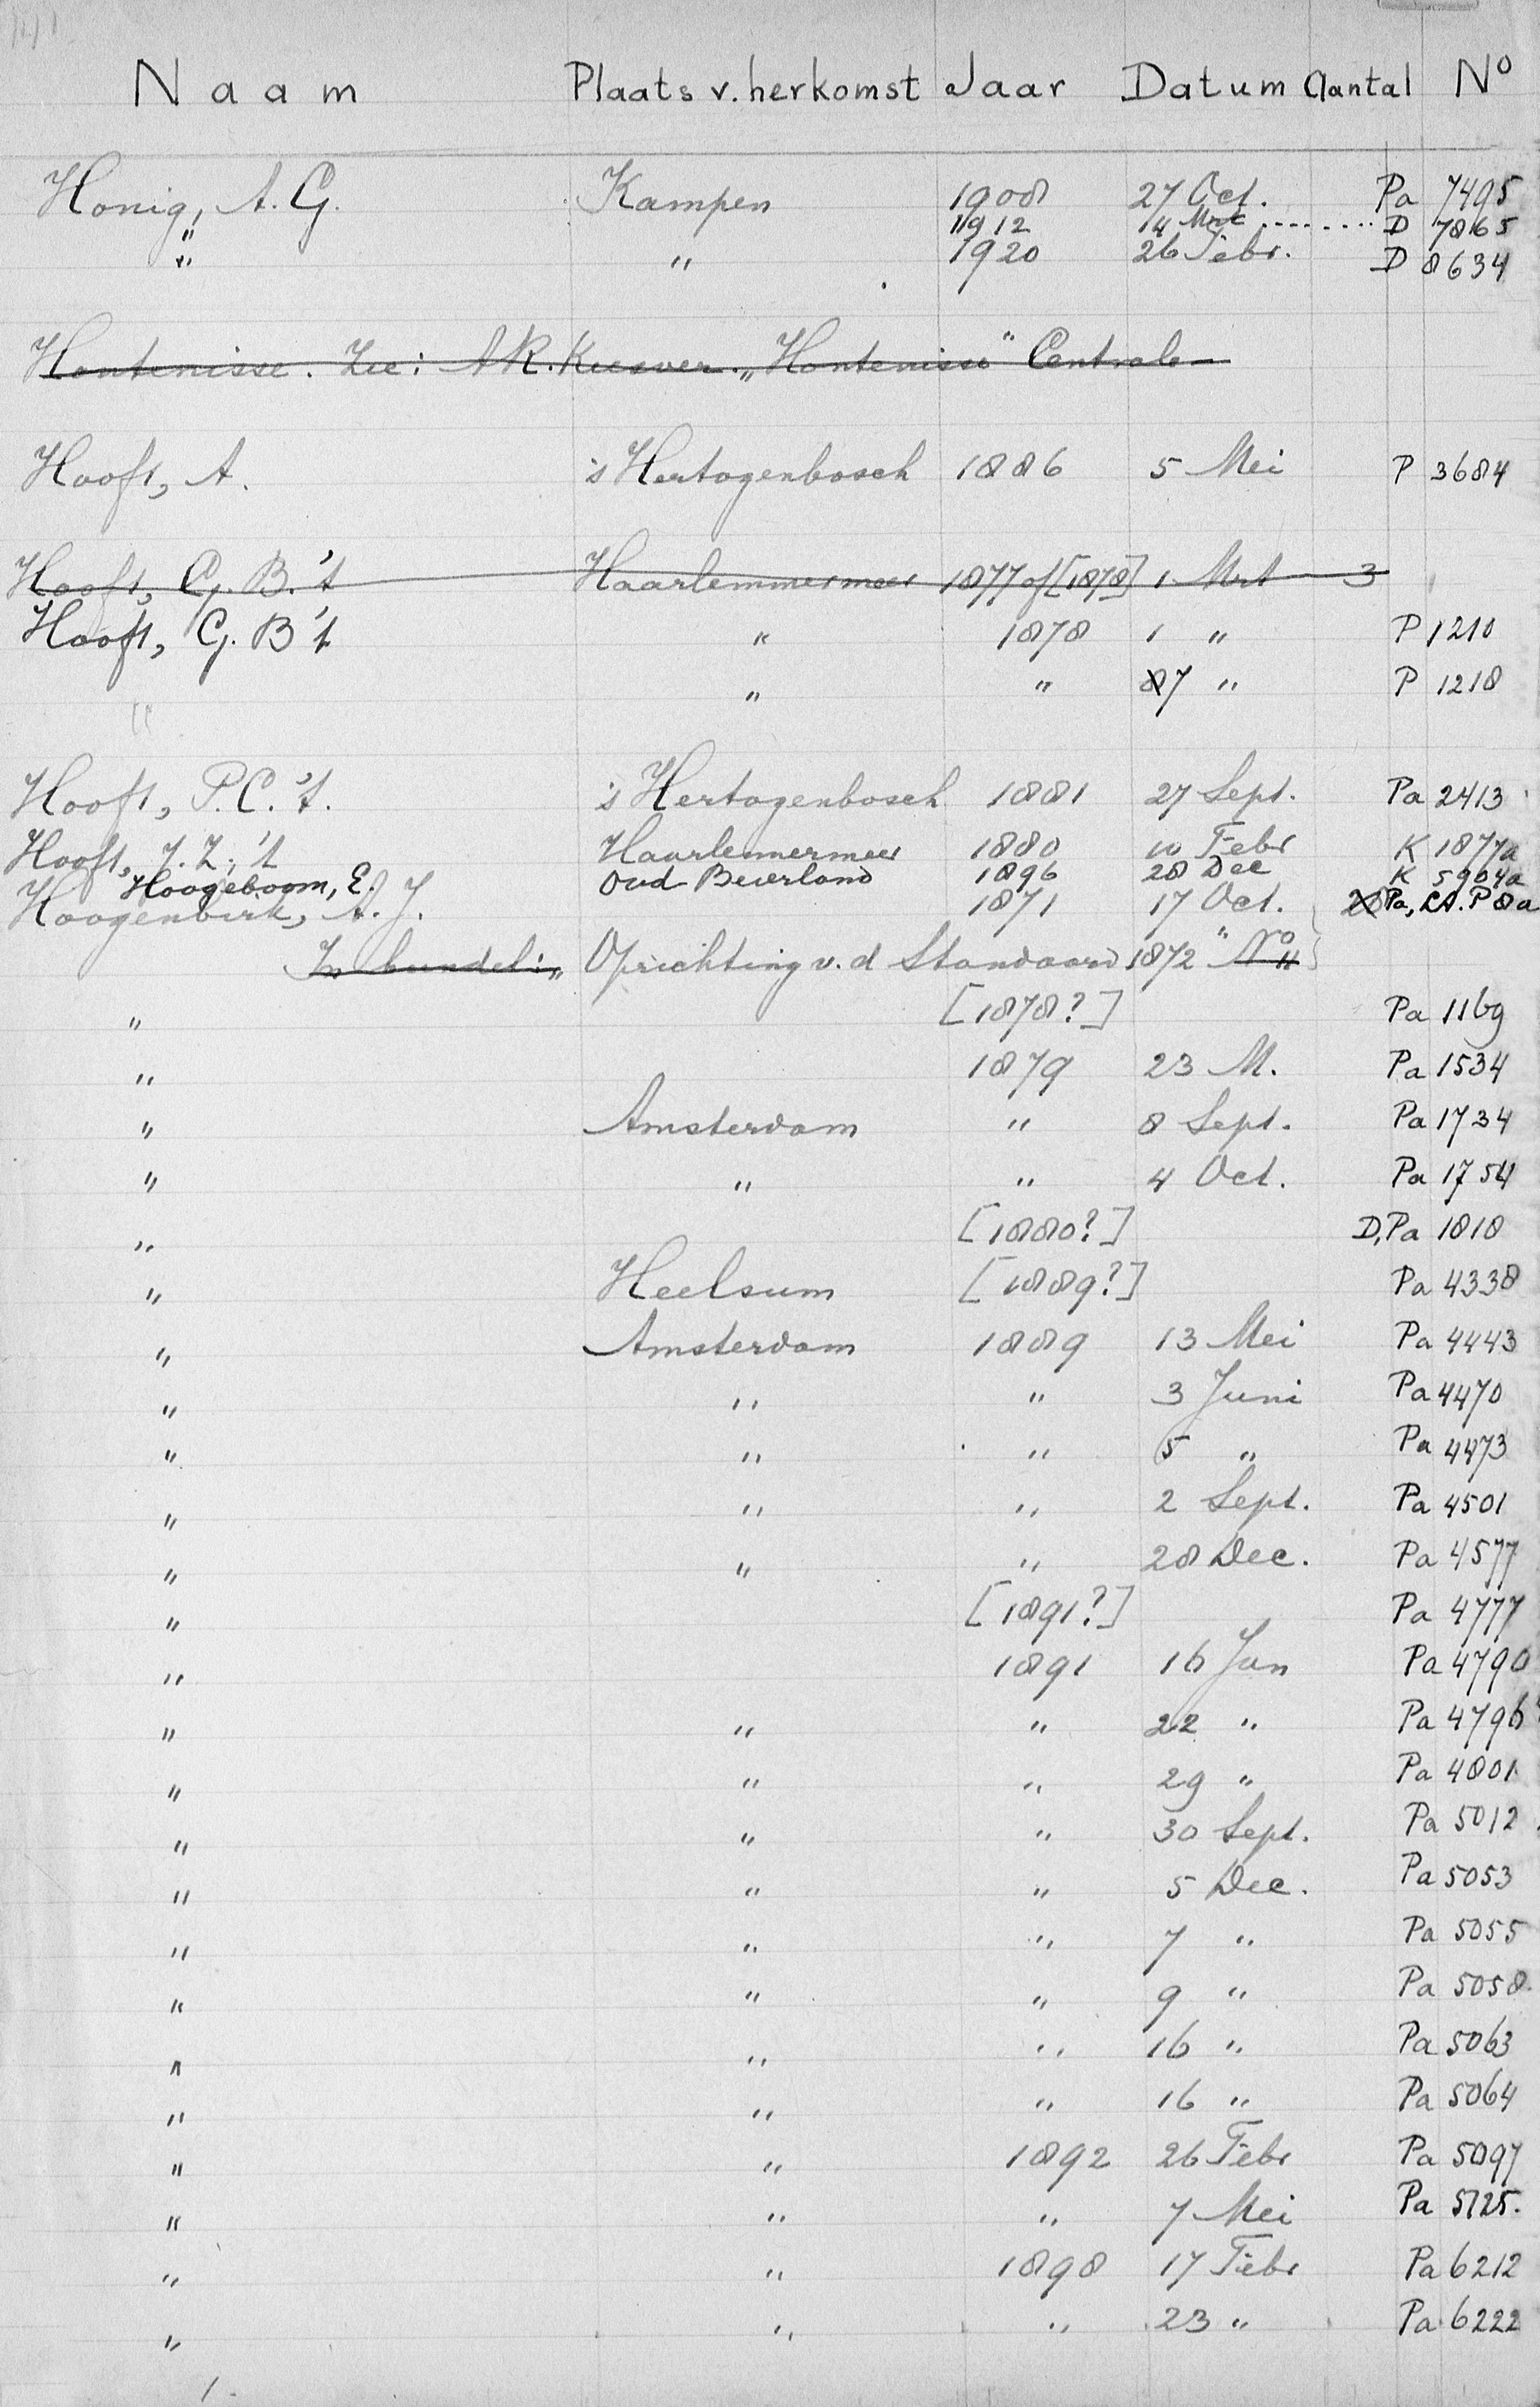 Naam Plaats v. herkomst Jaar Datum Aantal No
Honig, A. G. Kampen 1908 27 Oct. Pa 7495
" 1912 14 Mrt ......... D 7865
" " 1920 26 Febr. D 8634
Hontenisse. Zie: A.R. Kiesver. „Hontenisse" Centrale
Hooft, A. 's Hertogenbosch 1886 5 Mei P 3684
Hooft, G. B. 't Haarlemmermeer 1877 of [1878] 1 Mrt 3
Hooft, G. B 't " 1878 1 " P 1210
" " " 7 " P 1218
Hooft, P.C. 't. 's Hertogenbosch 1881 27 Sept. Pa 2413
Hooft, J. Z. 't Haarlemmermeer 1880 10 Febr K 1877a
Hoogeboom, E. Oud-Beierland 1896 28 Dec K 5904a
Hoogenbirk, A. J. 1871 17 Oct. Pa, LA. P 8a
In bundel: „ Oprichting v. d Standaard 1872 " No 11
" [1878?] Pa 1169
" 1879 23 M. Pa 1534
" Amsterdam " 8 Sept. Pa 1734
" " " 4 Oct. Pa 1754
" [1880?] D, Pa 1818
" Heelsum [1889?] Pa 4338
" Amsterdam 1889 13 Mei Pa 4443
" " " 3 Juni Pa 4470
" " " 5 " Pa 4473
" " " 2 Sept. Pa 4501
" " " 28 Dec. Pa 4577
" [1891?] Pa 4777
" 1891 16 Jan Pa 4790
" " " 22 " Pa 4796
" " " 29 " Pa 4801
" " " 30 Sept. Pa 5012
" " " 5 Dec. Pa 5053
" " " 7 " Pa 5055
" " " 9 " Pa 5058
" " " 16 " Pa 5063
" " " 16 " Pa 5064
" " 1892 26 Febr Pa 5097
" " " 7 Mei Pa 5125.
" " 1898 17 Febr Pa 6212
" " " 23 " Pa 6222